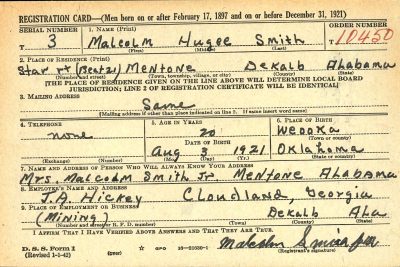 REGISTRATION CARD—(Men born on or after February 17, 1897 and on or before December 31, 1921)
SERIAL NUMBER 1. NAME (Print) ORDER NUMBER
3 Malcolm Hugee Smith 10450
(First) (Middle) (Last)
2. PLACE OF RESIDENCE (Print)
Star rt (Beat 2) Mentone Dekalb Alabama
(Number and street) (Town, township, village, or city) (County) (State)
[THE PLACE OF RESIDENCE GIVEN ON THE LINE ABOVE WILL DETERMINE LOCAL BOARD
JURISDICTION; LINE 2 OF REGISTRATION CERTIFICATE WILL BE IDENTICAL]
3. MAILING ADDRESS
Same
[Mailing address if other than place indicated on line 2. If same insert word same]
4. TELEPHONE 5. AGE IN YEARS 6. PLACE OF BIRTH
none 20 Weoka
DATE OF BIRTH (Town or county)
Aug 3 1921 Oklahoma
(Exchange) (Number) (Mo.) (Day) (Yr.) (State or country)
7. NAME AND ADDRESS OF PERSON WHO WILL ALWAYS KNOW YOUR ADDRESS
Mrs. Malcolm Smith Jr Mentone Alabama
8. EMPLOYER'S NAME AND ADDRESS
J.A. Hickey Cloudland, Georgia
9. PLACE OF EMPLOYMENT OR BUSINESS
(Mining) Dekalb Ala
(Number and street or R. F. D. number) (Town) (County) (State)
I AFFIRM THAT I HAVE VERIFIED ABOVE ANSWERS AND THAT THEY ARE TRUE.
D. S. S. Form 1
(Revised 1-1-42) (over) GPO 16—21630-1 Malcolm Smith
(Registrant's signature)